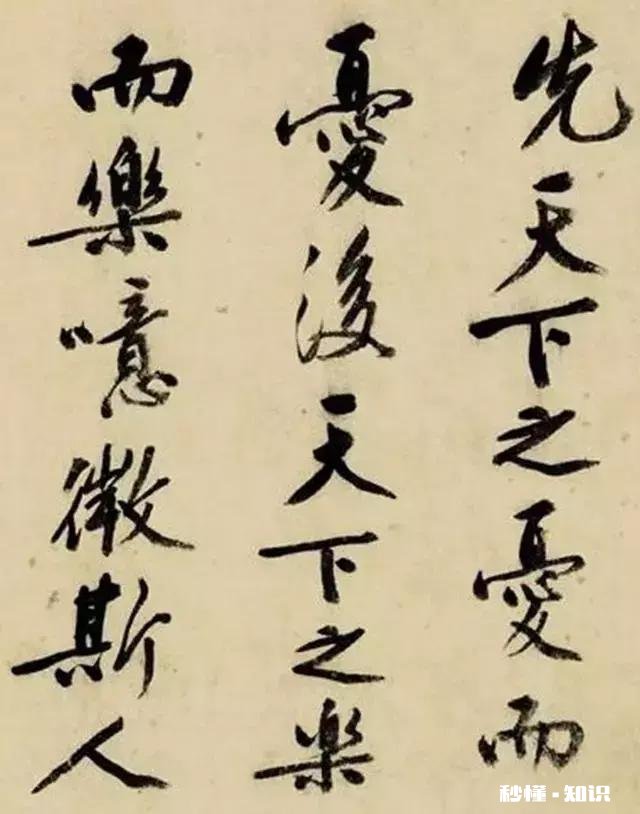 先天下之憂而
憂後天下之樂
而樂噫微斯人
秒懂·知识